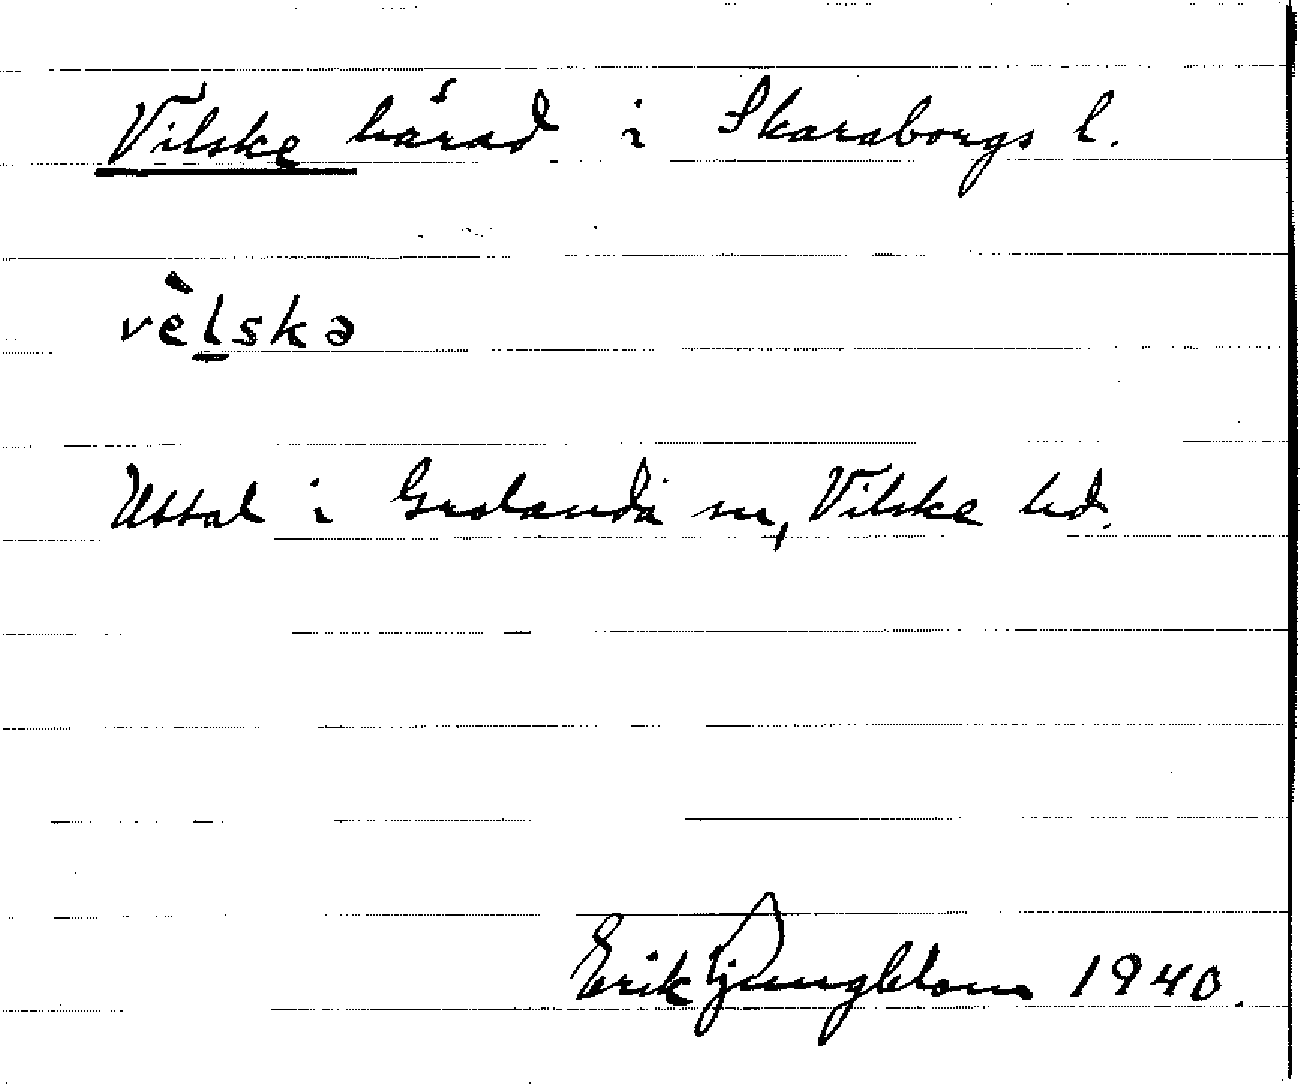 Vilske härad i Skaraborgs l.
vèl̲skə
Uttal i Grolanda sn, Vilske hd.
Erik Ljungblom 1940.